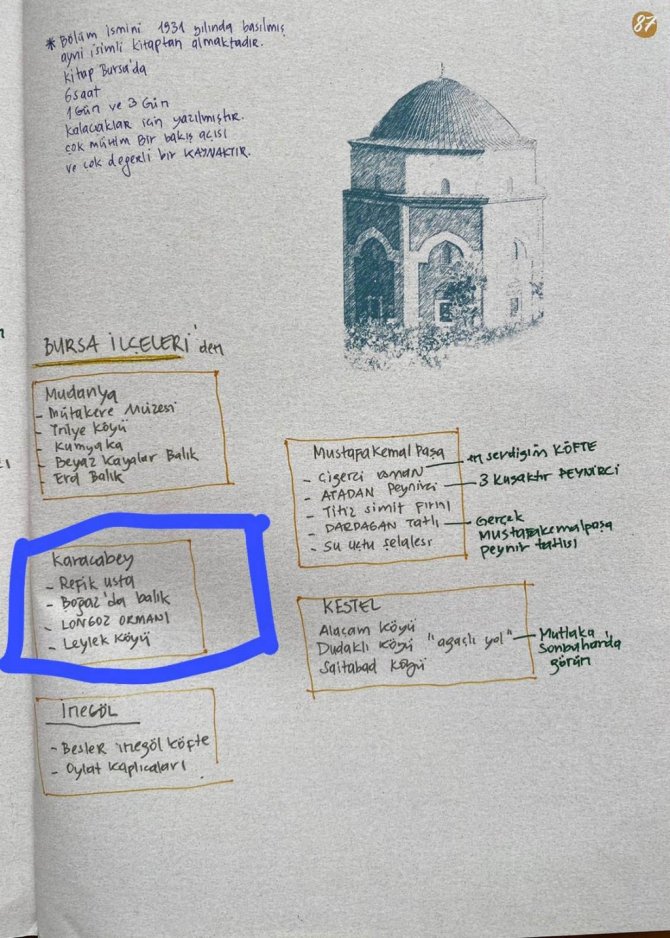 87
* Bölüm ismini 1931 yılında basılmış
ayni isimli kitaptan almaktadır.
kitap Bursa'da
6 saat
1 Gün ve 3 Gün
kalacaklar için yazılmıştır.
çok mühim Bir bakış açısı
ve çok değerli bir KAYNAKTIR.
BURSA İLÇELERİ'den
Mudanya
- Mütakere Müzesi
- Trilye Köyü
- Kumyaka
- Beyaz Kayalar Balık
- Erol Balık
Karacabey
- Refik usta
- Boğaz'da balık
- LONGOZ ORMANI
- Leylek Köyü
İnegöl
- Besler inegöl köfte
- Oylat Kaplıcaları
Mustafa Kemal Paşa
- Cigerci osman — en sevdiğim KÖFTE
- ATADAN Peynirci — 3 kuşaktır PEYNİRCİ
- Titiz simit fırını
- DARDAĞAN Tatlı — Gerçek
Mustafakemalpaşa
peynir tatlısı
- Su uçtu şelalesi
KESTEL
Alaçam Köyü
Dudaklı Köyü "ağaçlı yol" — Mutlaka
sonbaharda
görün
Saitabad Köyü